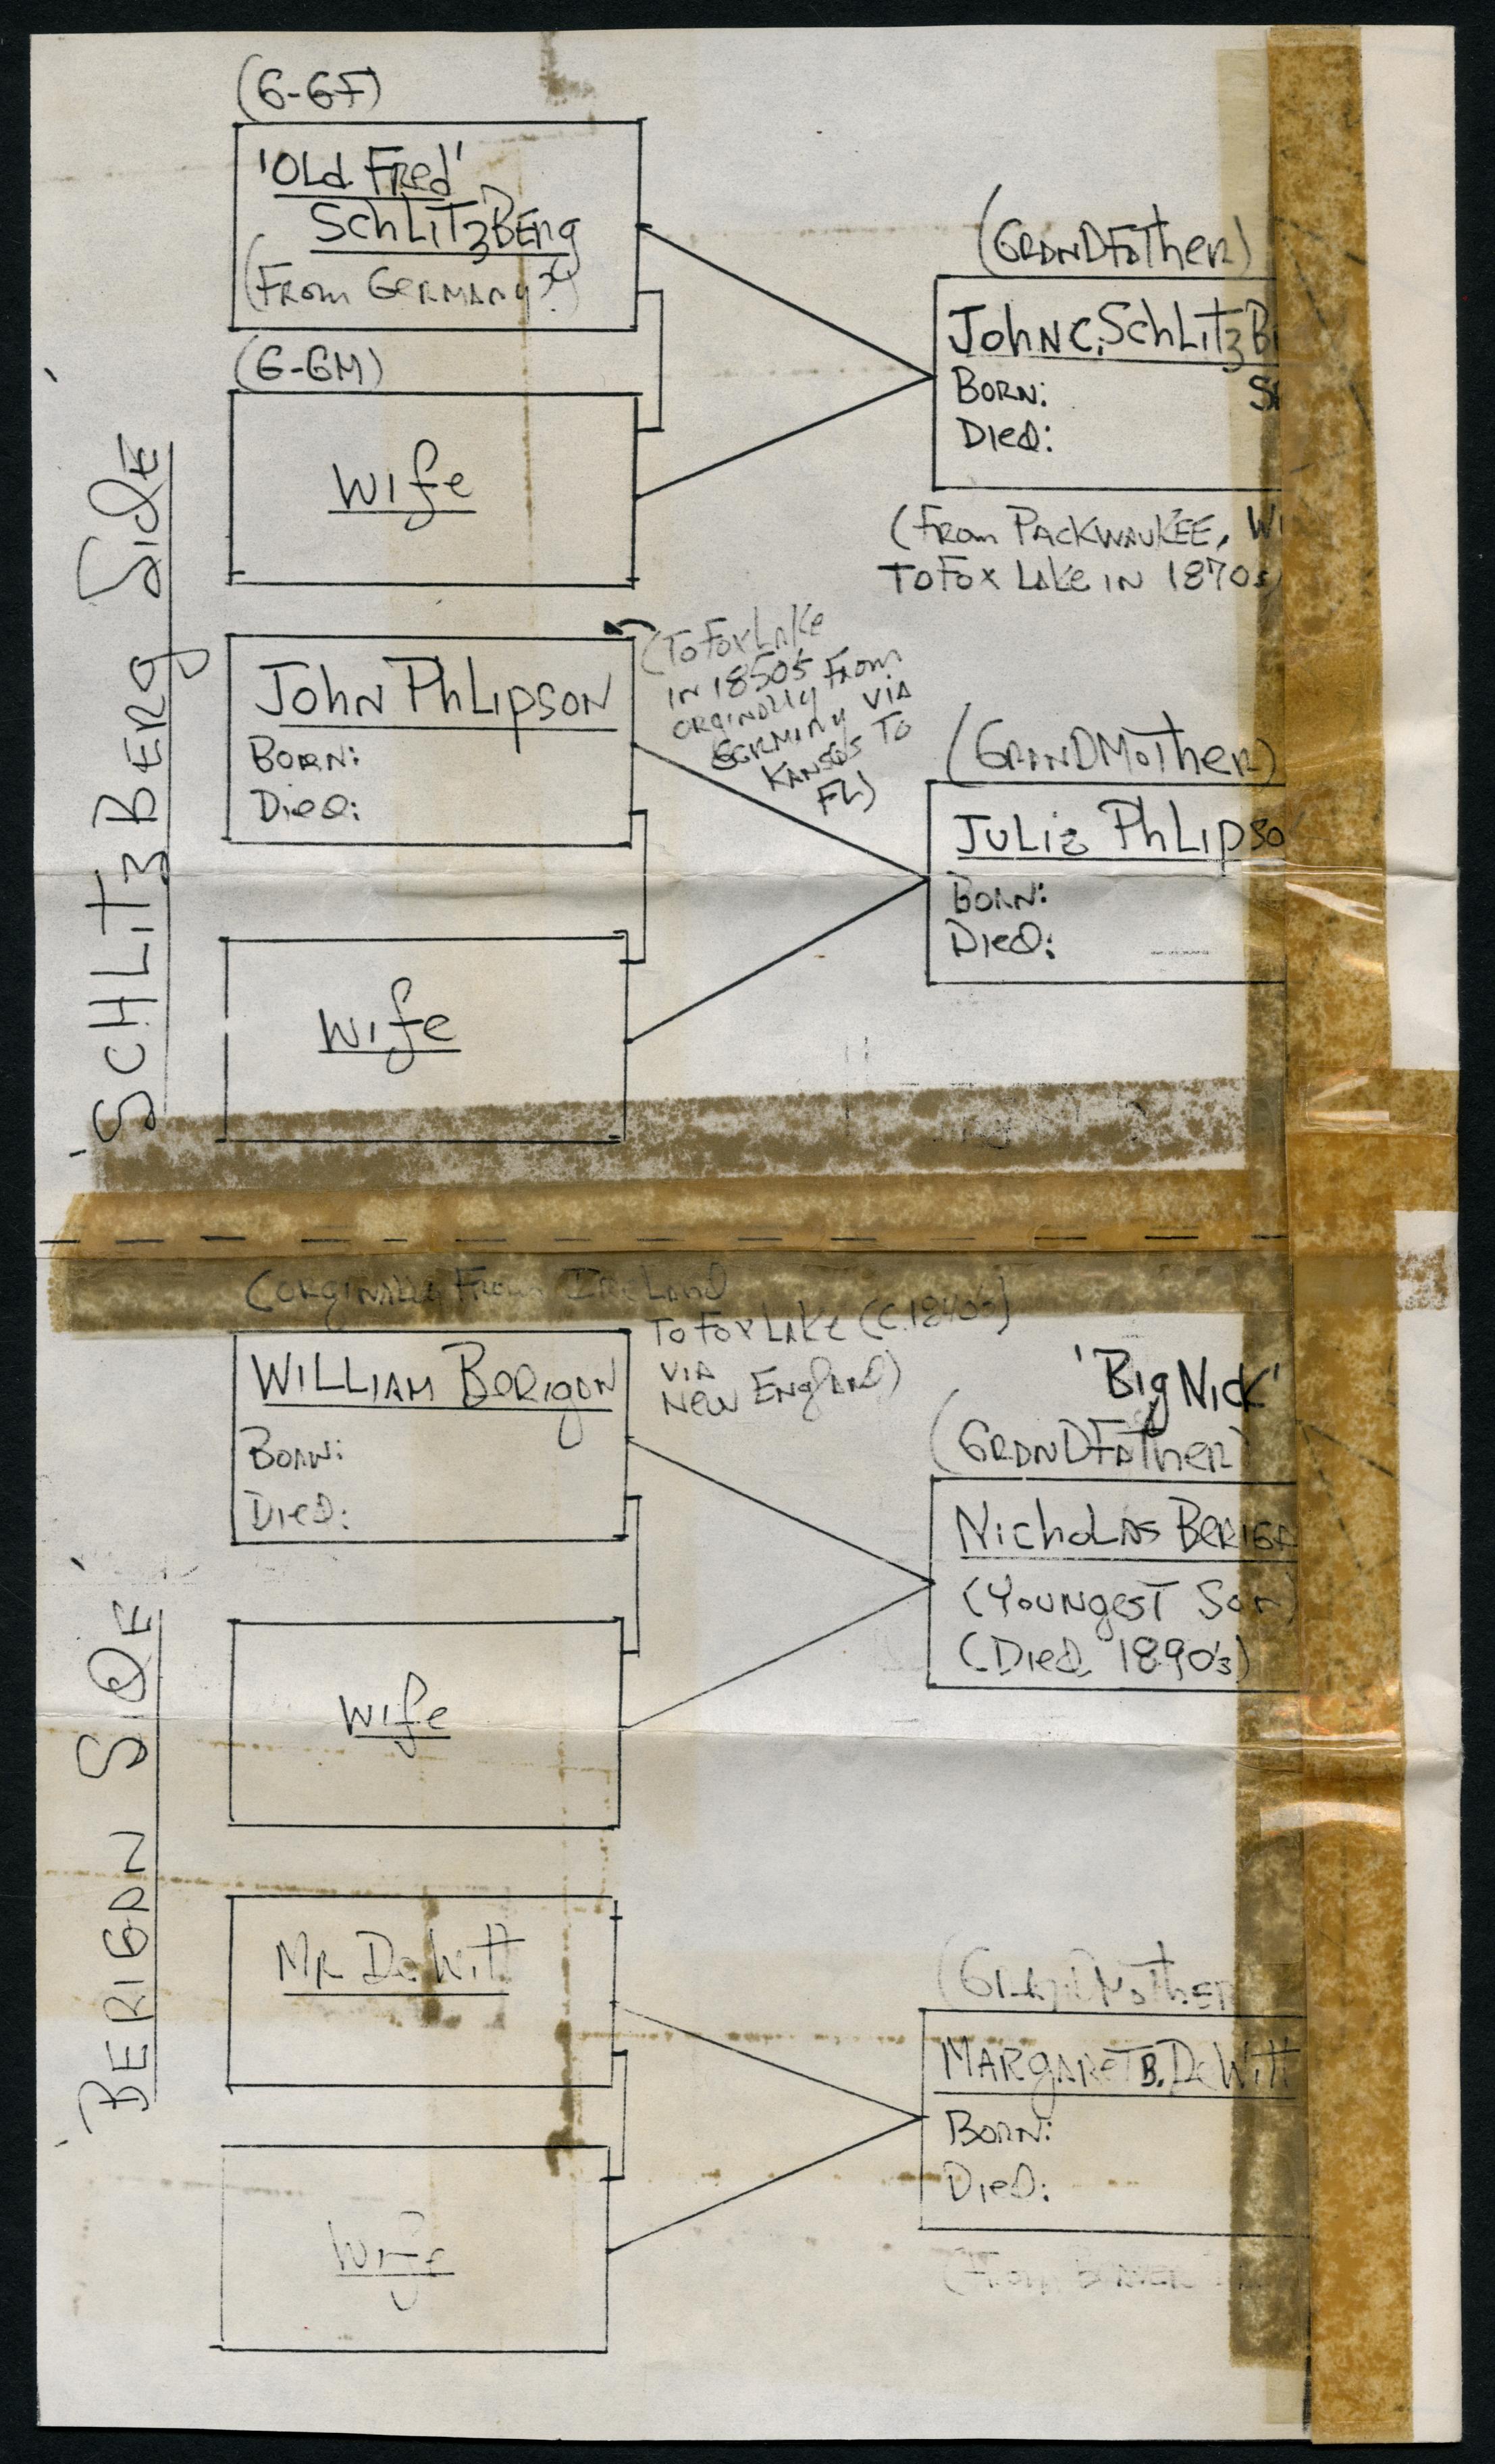 'SCHLITZBERG SIDE'
(G-GF)
'OLd FRed'
SchLITZBERg
(FROM GERMANY?)
(G-GM)
WIfe
(GRANDFATher)
JOhN C. SchLITZBE
BORN:
DIED:
(FROM PACKWAUKEE, WI
TO FOX LAKE IN 1870s
JOhN PhLIPSON
BORN:
DIED:
(TO FOX LAKE
IN 1850s
ORGINALLY FROM
GERMANY VIA
KANSAS TO
FL)
WIfe
(GRANDMOTher)
JULIa PhLIPSO
BORN:
DIED:
'BERIGAN SIDE'
(ORGINALLY FROM IRELAND
TO FOX LAKE (C. 1840's)
VIA
NEW ENGLAND)
WILLIAM BERIGAN
BORN:
DIED:
WIfe
'BIg NICK'
(GRANDFATher)
NIChOLAS BERIGA
(YOUNgEST SON)
(DIED 1890's)
MR DeWITT
WIfe
(GRANDMOTHER
MARgARET B. DeWITT
BORN:
DIED:
(FROM